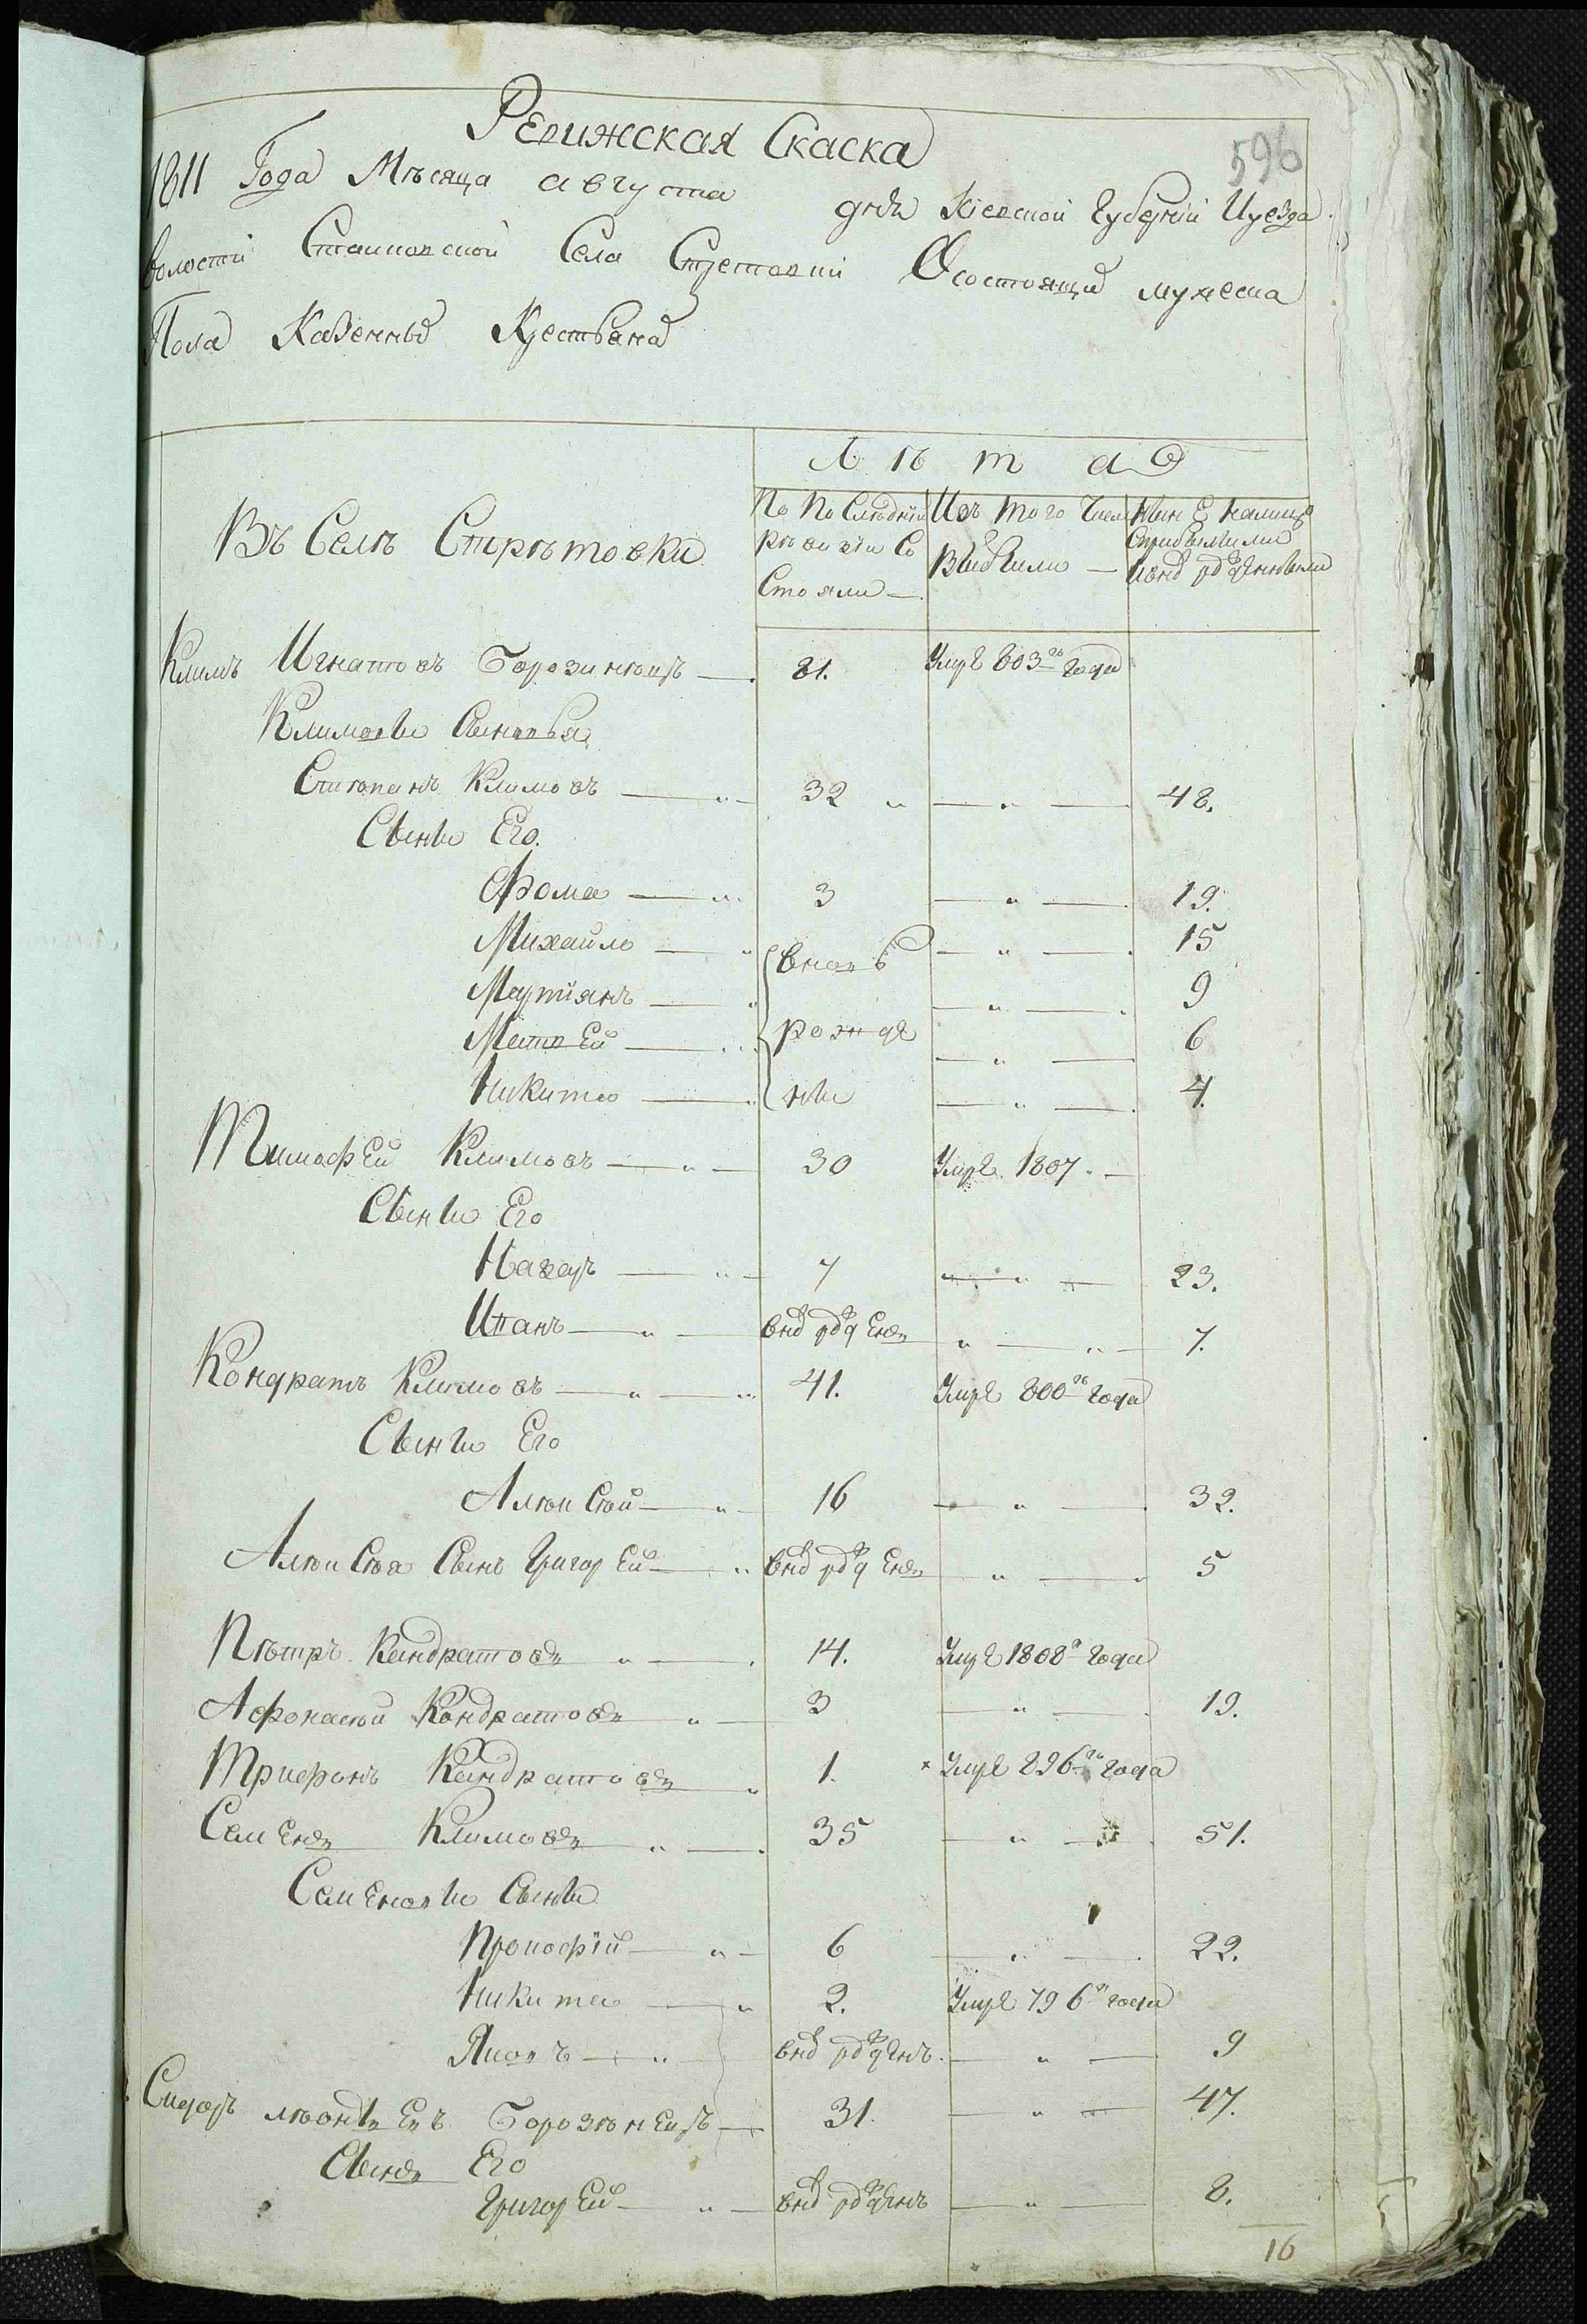 Ревижская Скаска
596
1811 Года Мѣсяца августа дня Кіевской Губерніи И уезда
волости Стаиковской Села Стретовки О состоящих мужеска
Пола Казенных Крестьянах
Лѣта
По последней ревизіи Состояли
Изъ того числа Выбыли
Ныне в налицо
Въ Селѣ Стрѣтовки
Климъ Игнатовъ 81. Умре 803го года
Климовы Сыновья
Стѣпанъ Климовъ 32 " 48.
Сыны Его.
Фома 3 " 19.
Михайло вновь " 15
Мартіянъ " 9
Матвей рожде " 6
Никита ны " 4.
Тимофей Климовъ 30 Умре 1807
Сыны Его
Назаръ 7 " 23.
Иванъ внов рожденъ " 7.
Кондратъ Климовъ 41. Умре 800го года
Сыны Его
Алѣксѣй 16 " 32.
Алѣксѣя Сынъ Григорей внов рожденъ " 5
Пѣтръ Кандратовъ 14. Умре 1808го года
Афонасѣй Кондратовъ 3 " 19.
Трифонъ Кандратовъ 1. Умре 796го года
Семенъ Климовъ 35 " 51.
Семеновы Сыны
Прокофій 6 " 22.
Никита 2. Умре 796го года
Яковъ внов рожденъ " 9
Сидоръ Лѣонтьевъ 31. " 47.
Сынъ Его
Григорей внов рожденъ " 8.
16